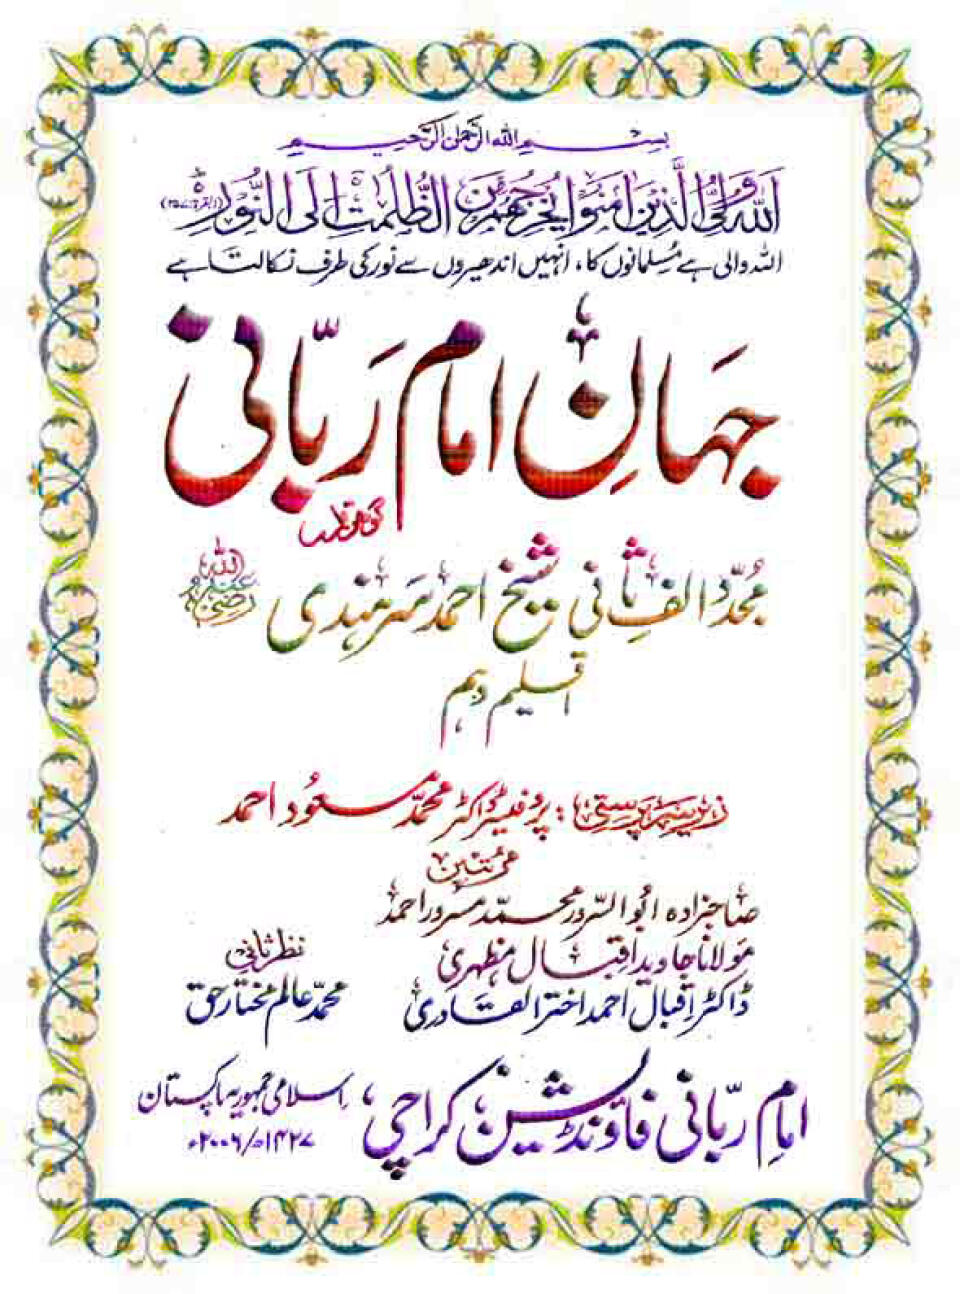 بسم اللہ الرحمٰن الرحیم
اَللّٰهُ وَلِیُّ الَّذِیْنَ اٰمَنُوْا یُخْرِجُهُمْ مِّنَ الظُّلُمٰتِ اِلَی النُّوْرِ (البقرۃ: ۲۵۷)
اللہ والی ہے مسلمانوں کا، انہیں اندھیروں سے نور کی طرف نکالتا ہے
جہانِ امام ربّانی
گوہر قلم
مجدّد الفِ ثانی شیخ احمد سرہندی رضی اللہ عنہ
اقلیم دہم
زیرِ سرپرستی: پروفیسر ڈاکٹر محمّد مسعُود احمد
مرتبین
صاحبزادہ ابُو السّرور محمّد مسرور احمد
مولانا جاوید اقبال مظہری
ڈاکٹر اقبال احمد اختر القادری
نظر ثانی
محمّد عالم مختار حق
امامِ ربّانی فاؤنڈیشن کراچی،
اسلامی جمہوریہ پاکستان
۱۴۲۷ھ/۲۰۰۶ء